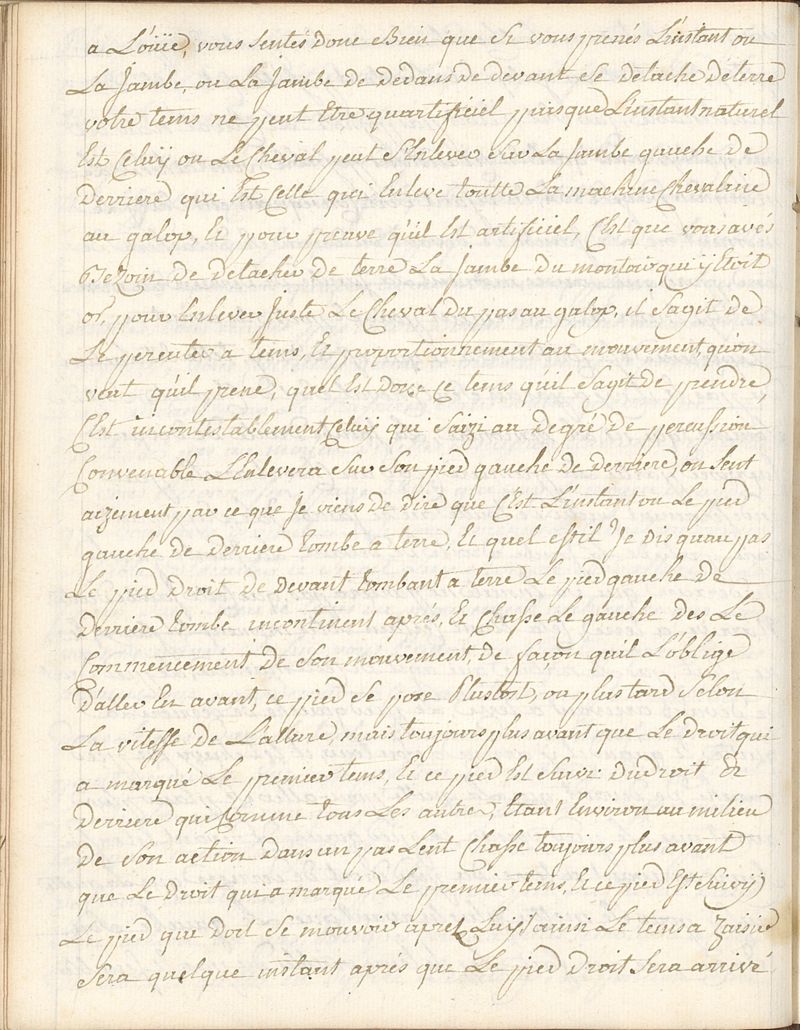 a L'oüie, vous sentés donc Bien que si vous prenés L'instant ou
La Jambe, ou La Jambe de dedans de devant se detache de terre
votre tems ne peut Etre qu'artificiel puisque L'instant naturel
Est Celuy ou Le Cheval peut S'Enlever sur La Jambe gauche de
derriere qui Est Celle qui Enleve toutte La machine Chevaline
au galop, Et pour preuve qu'il Est artificiel, C'est que vous avés
Bezoin de detacher de terre La Jambe du montoir qui y Etoit
or, pour Enlever Juste Le Cheval du pas au galop, il s'agit de
Le percuter a tems, Et proportionnement au mouvement qu'on
veut qu'il prene, quel Est Donc ce tems qu'il s'agit de prendre,
C'Est incontestablement Celuy qui saizi au degré de percussion
Convenable L'Enlevera sur son pied gauche de derriere, on sent
aizement par ce que Je viens de dire que C'est L'instant ou Le pied
gauche de derriere tombe a terre, Et quel est il? Je dis qu'au pas
Le pied Droit de Devant tombant a terre Le pied gauche de
derriere tombe incontinent aprés, Et Chasse Le gauche des Le
Commencement de son mouvement, de façon qu'il L'oblige
D'aller En avant, ce pied se pose Plustost, ou plus tard selon
La vitesse de L'allure, mais toujours plus avant que Le droit qui
a marqué Le premier tems, Et ce pied Est suivi du droit de
derriere qui Comme tous Les autres, Etant Environ au milieu
de son action dans un pas Lent Chasse toujours plus avant
que Le droit qui a marqué Le premier tems, Et ce pied Est suivi
Le pied que doit se mouvoir apres Luy, ainsi Le tems a zaisir
sera quelque instant aprés que Le pied Droit sera arrivé